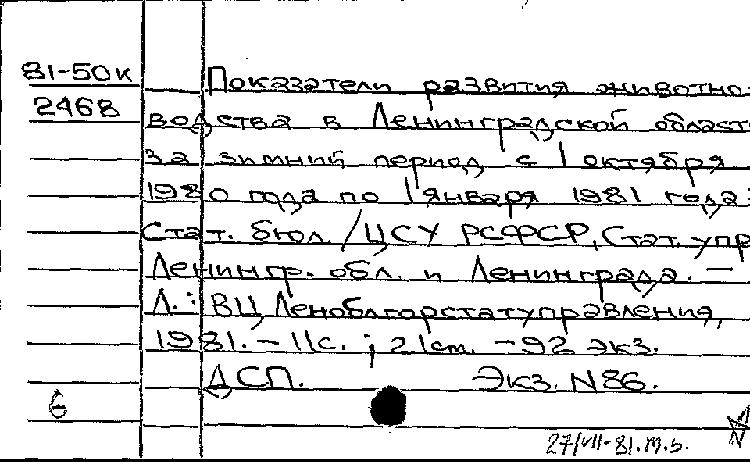 81-50к
2468
Показатели развития животно-
водства в Ленинградской област
за зимний период с 1 октября
1980 года по 1 января 1981 года:
Стат. бюл. /ЦСУ РСФСР, Стат. упр
Ленингр. обл. и Ленинграда. —
Л.: ВЦ Леноблгорстатуправления,
1981. – 11с. ; 21см. – 92 экз.
ДСП. Экз. N86.
6
27/VII-81.